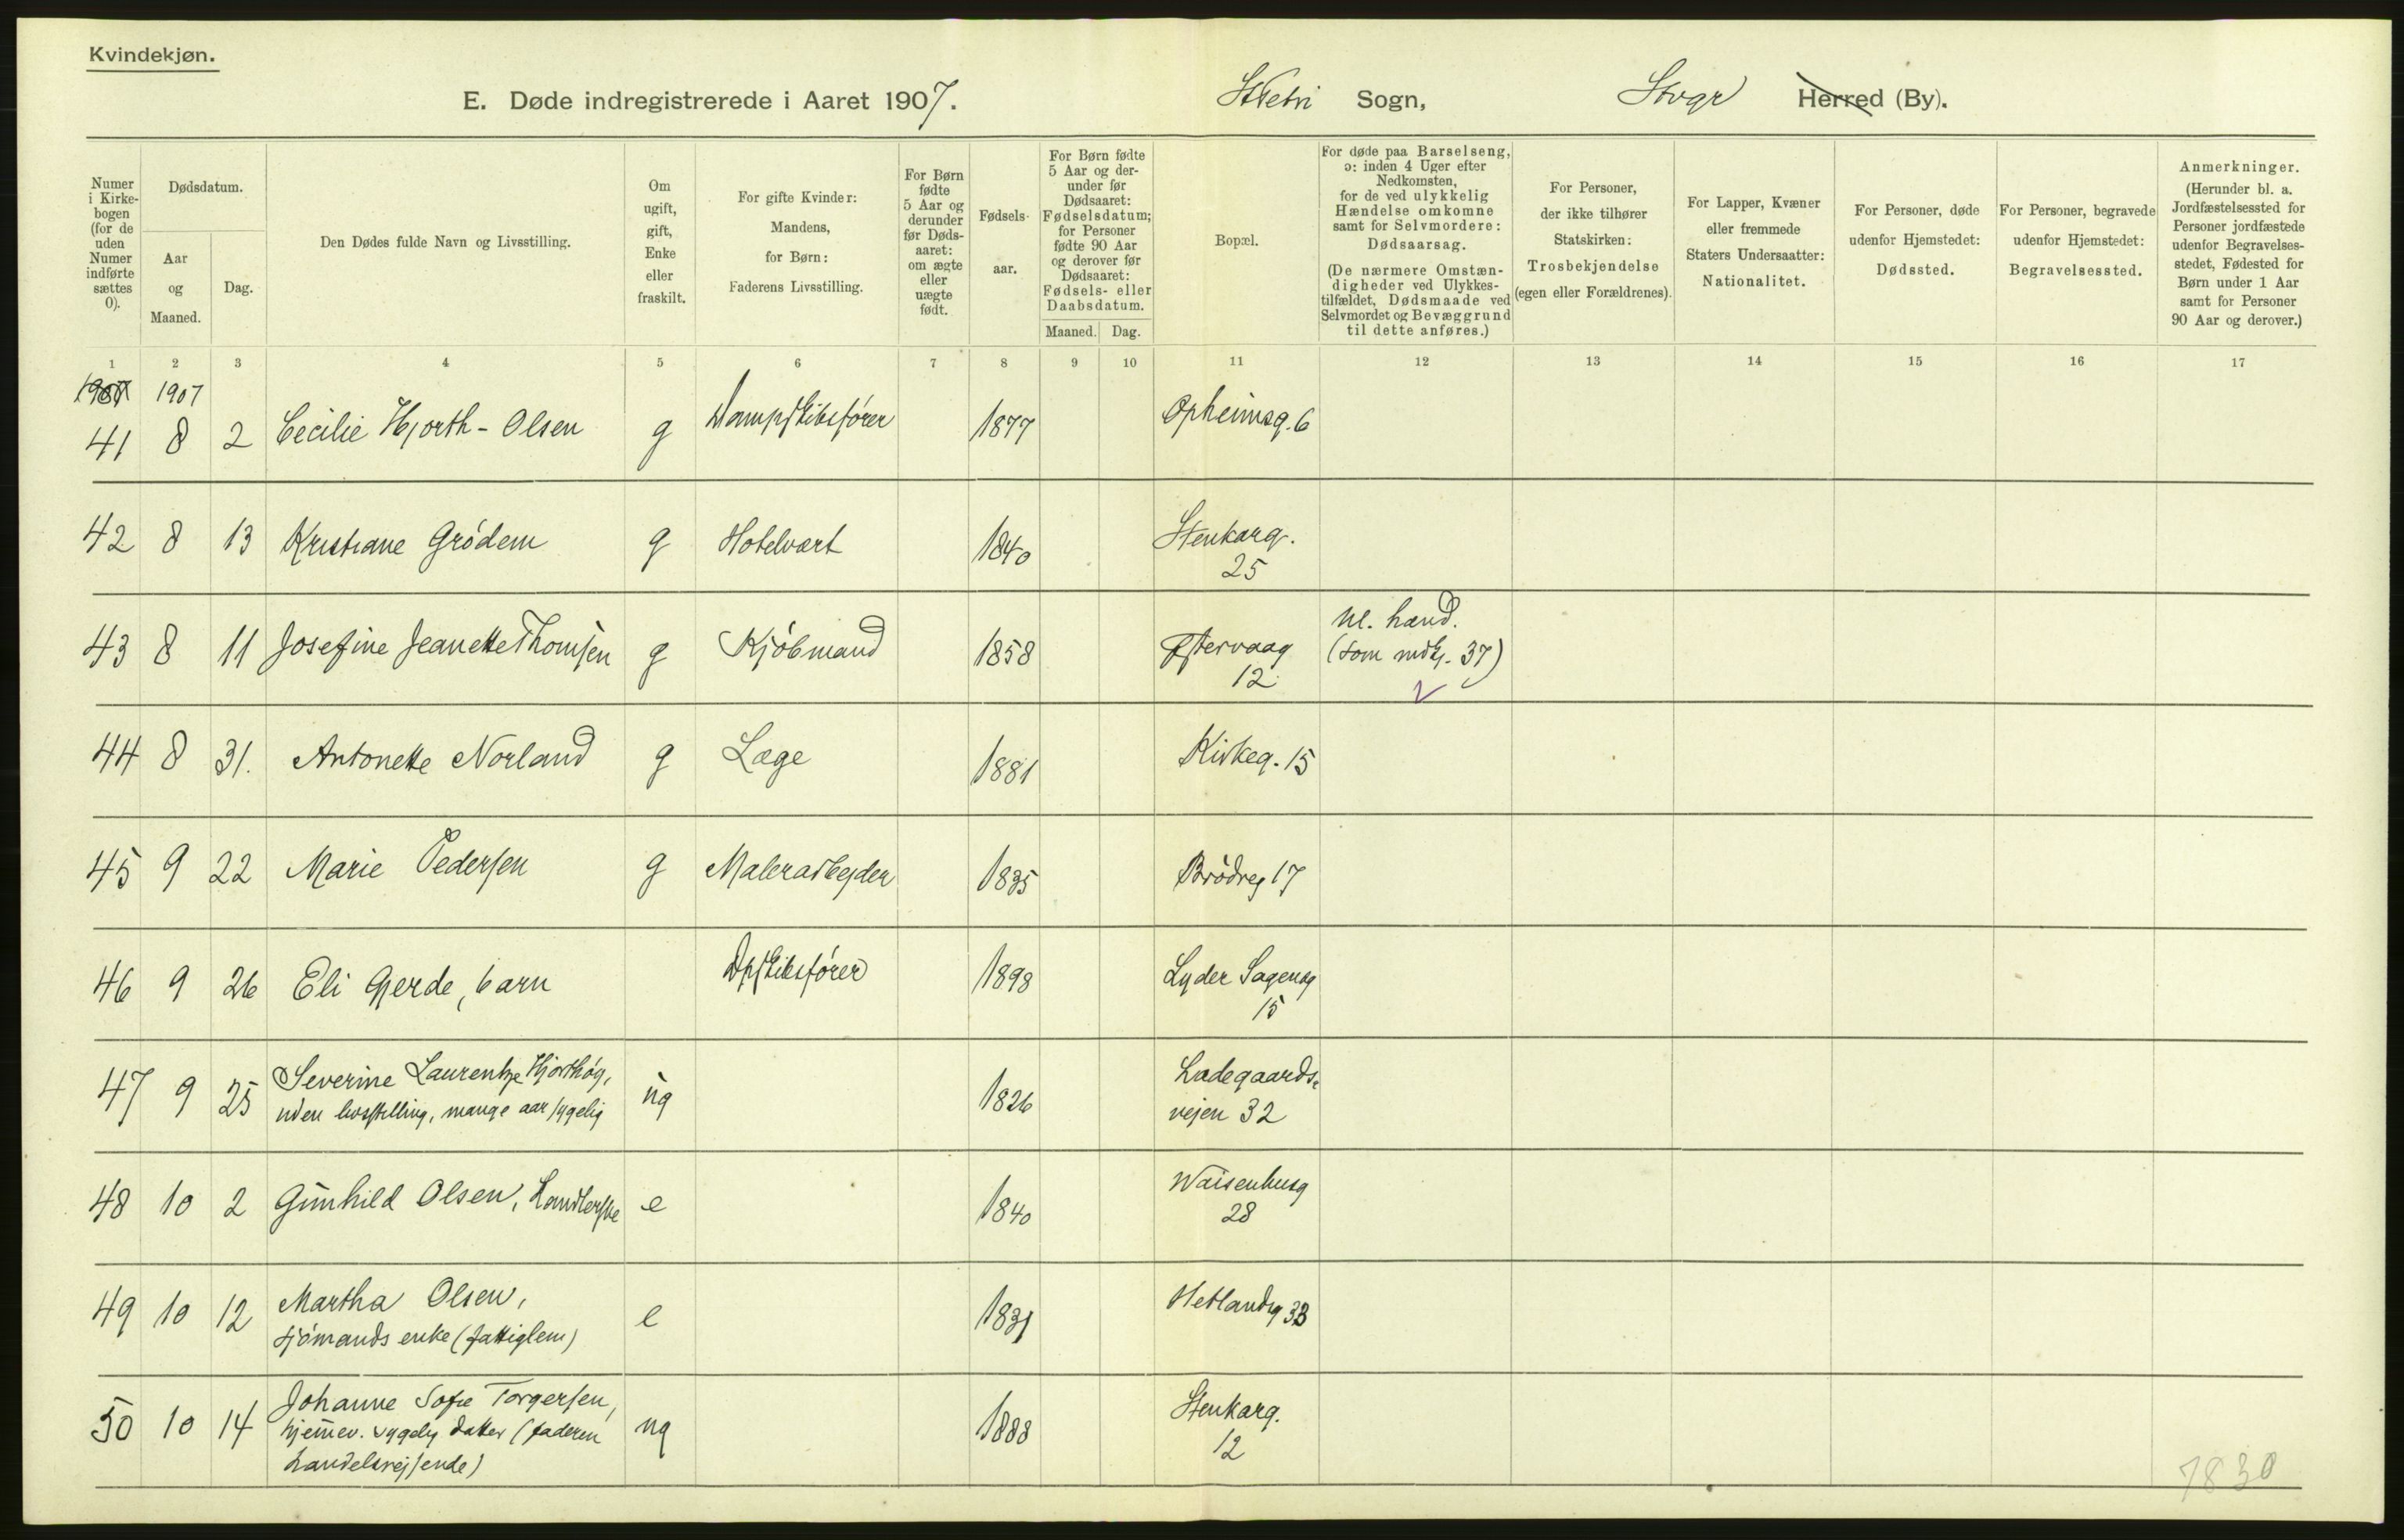 Kvindekjøn.
E. Døde indregistrerede i Aaret 1907. St Petri Sogn, Stvgr Herred (By).
Numer i Kirke-bogen (for de uden Numer indførte sættes 0).
Dødsdatum.
Aar og Maaned.
Dag.
Den Dødes fulde Navn og Livsstilling.
Om ugift, gift, Enke eller fraskilt.
For gifte Kvinder: Mandens, for Børn: Faderens Livsstilling.
For Børn fødte 5 Aar og derunder før Døds-aaret: om ægte eller uægte født.
Fødsels-aar.
For Børn fødte 5 Aar og der-under før Dødsaaret: Fødselsdatum; for Personer fødte 90 Aar og derover før Dødsaaret: Fødsels- eller Daabsdatum.
Maaned. Dag.
Bopæl.
For døde paa Barselseng, ɔ: inden 4 Uger efter Nedkomsten, for de ved ulykkelig Hændelse omkomne samt for Selvmordere: Dødsaarsag.
(De nærmere Omstæn-digheder ved Ulykkes-tilfældet, Dødsmaade ved Selvmordet og Bevæggrund til dette anføres.)
For Personer, der ikke tilhører Statskirken: Trosbekjendelse (egen eller Forældrenes).
For Lapper, Kvæner eller fremmede Staters Undersaatter: Nationalitet.
For Personer, døde udenfor Hjemstedet: Dødssted.
For Personer, begravede udenfor Hjemstedet: Begravelsessted.
Anmerkninger.
(Herunder bl. a. Jordfæstelsessted for Personer jordfæstede udenfor Begravelses-stedet, Fødested for Børn under 1 Aar samt for Personer 90 Aar og derover.)
1 2 3 4 5 6 7 8 9 10 11 12 13 14 15 16 17
1907 1907
41 8 2 Cecilie Hjorth-Olsen g Dampskibsfører 1877 Opheimsg. 6
42 8 13 Kristiane Grödem g Hotelvært 1840 Stenkarg.
25
43 8 11 Josefine Jeanette Thomsen g Kjöbmand 1858 Østervaag
12
ul. hænd.
(som mdkj. 37)
44 8 31. Antonette Norland g Læge 1881 Kirkeg. 15
45 9 22 Marie Pedersen g Malerarbejder 1835 Brödreg 17
46 9 26 Eli Gjerde, barn Dpskibsfører 1898 Lyder Sagensg
15
47 9 25 Severine Laurentze Hjorthög,
uden livsstilling, mange aar sygelig
ug 1826 Ladegaards-
vejen 32
48 10 2 Gunhild Olsen, Handlerske e 1840 Waisenhusg
28
49 10 12 Martha Olsen,
sjömands enke (fattiglem)
e 1831 Hetlandsg 33
50 10 14 Johanne Sofie Torgersen,
hjemmev. sygelig datter (faderen
handelsrejsende)
ug 1888 Stenkarg.
12
7830